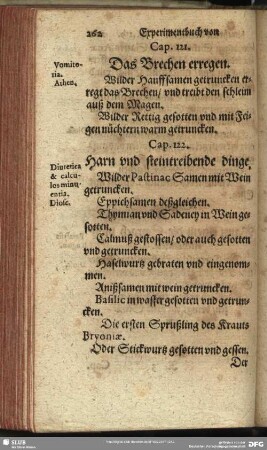 262 Experimentbuch von
Cap. 121.
Vomitoria.
Athen.
Das Brechen erregen.
Wilder Hanffsamen getruncken erregt das Brechen/ vnd treibt den schleim
auß dem Magen.
Wilder Rettig gesotten vnd mit Feigen nüchtern warm getruncken.
Cap. 122.
Diuretica
& calculos minuentia.
Diosc.
Harn vnd steintreibende dinge.
Wilder Pastinac Samen mit Wein
getruncken.
Eppichsamen deßgleichen.
Thymian vnd Sadeney in Wein gesotten.
Calmuß gestossen/ oder auch gesotten
vnd getruncken.
Haselwurtz gebraten vnd eingenommen.
Anißsamen mit wein getruncken.
Basilic in wasser gesotten vnd getruncken.
Die ersten Sprüßling des Krauts
Bryoniæ.
Oder Stickwurtz gesotten vnd gessen.
Der
SLUB